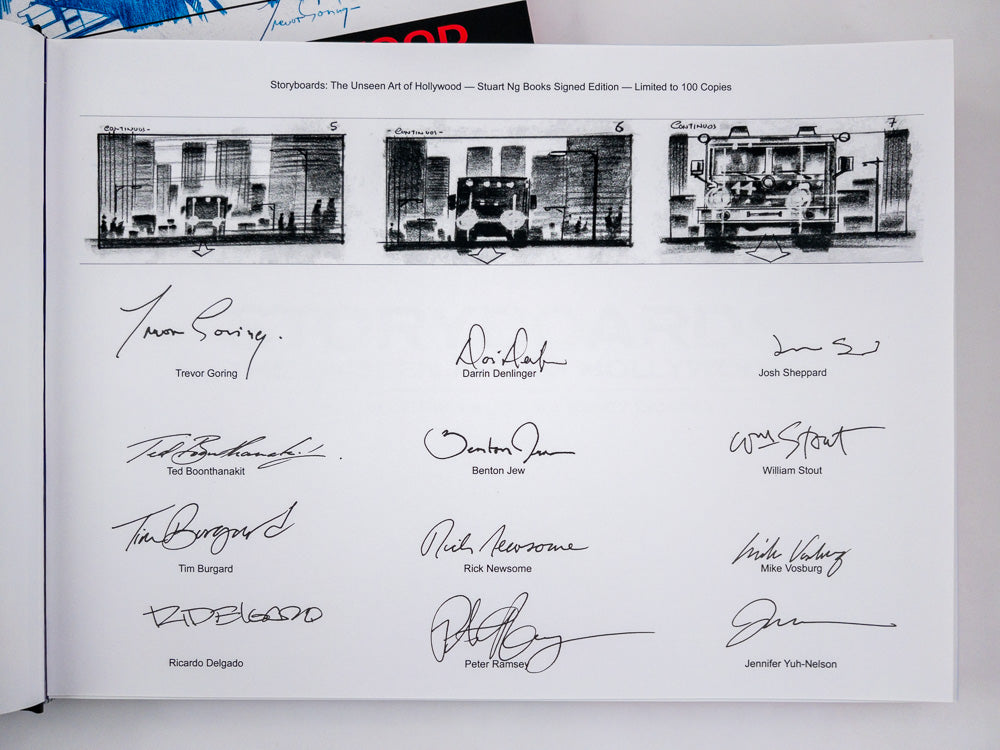 Trevor Goring
OOD
Storyboards: The Unseen Art of Hollywood — Stuart Ng Books Signed Edition — Limited to 100 Copies
CONTINUOS- 5
- CONTINUOS- 6
CONTINUOS 7
44
Trevor Goring.
Trevor Goring
Darrin Denlinger
Josh Sheppard
Ted Boonthanakit.
Benton Jew
Wm Stout
Ted Boonthanakit
Benton Jew
William Stout
Tim Burgard
Rick Newsome
Mike Vosburg
Tim Burgard
Rick Newsome
Mike Vosburg
R DELGADO
Ricardo Delgado
Peter Ramsey
Jennifer Yuh-Nelson